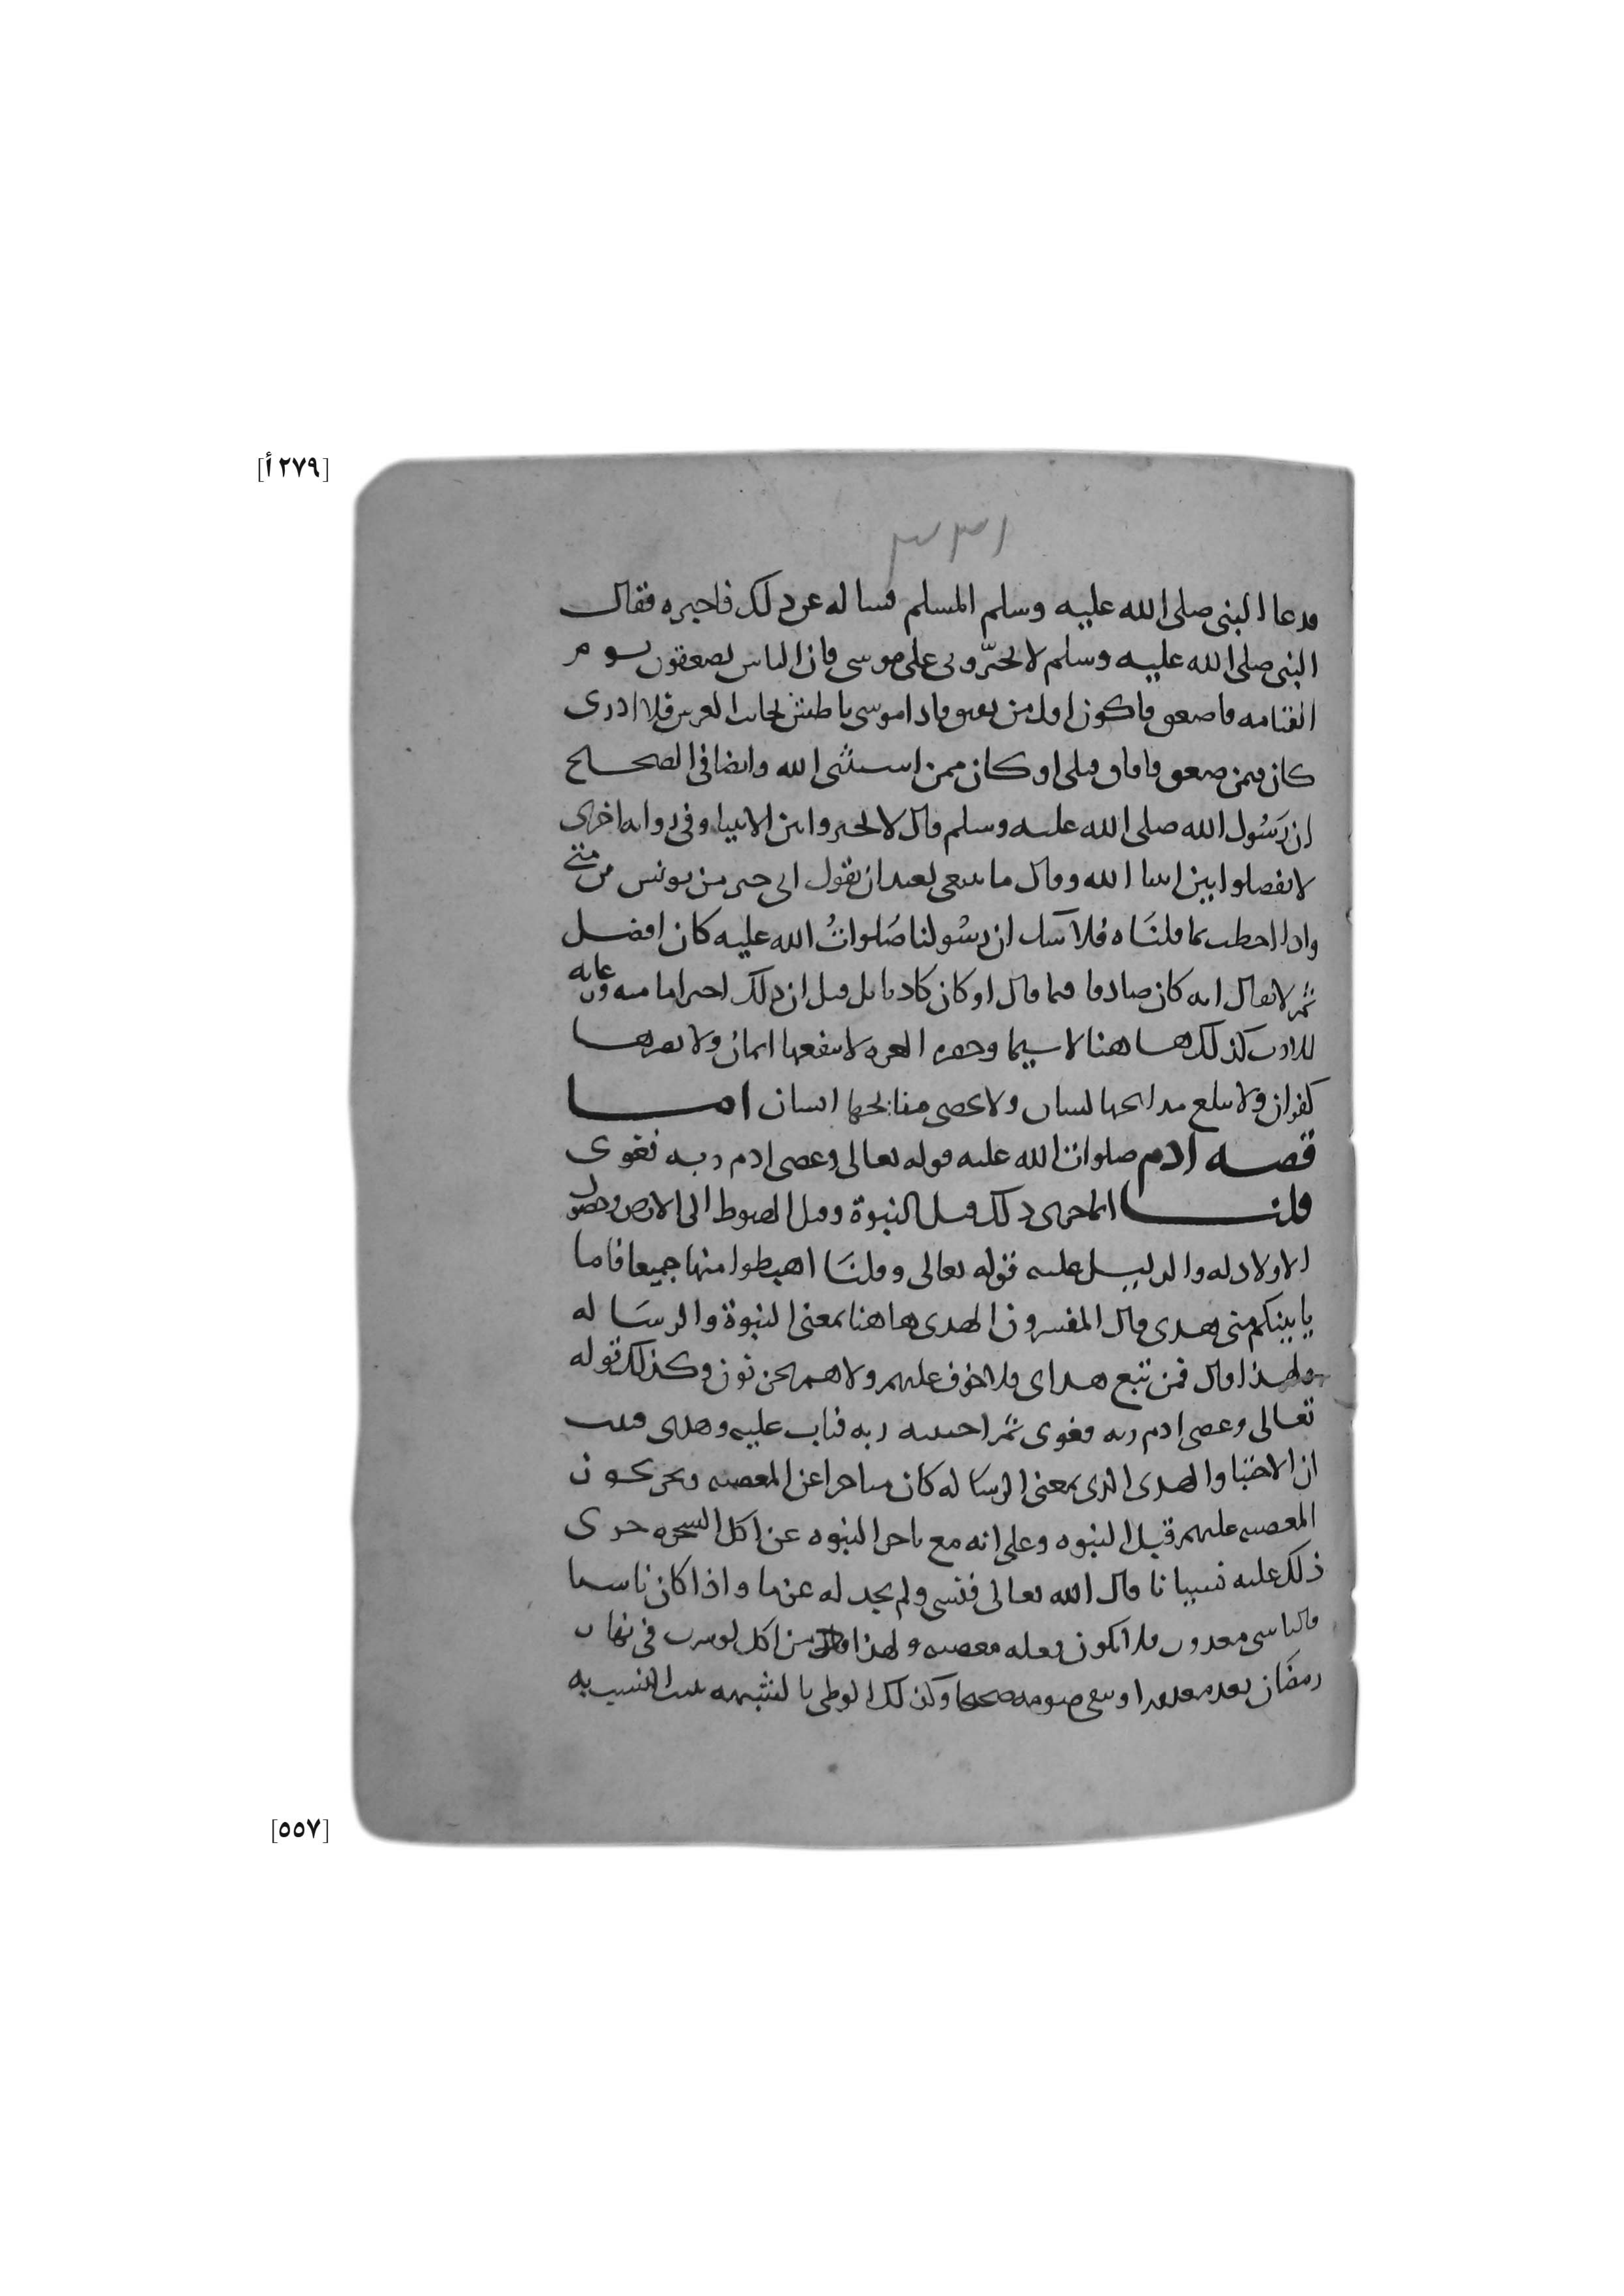 [٢٧٩ أ]
فدعا النبى صلى الله عليه وسلم المسلم فساله عن ذلك فاخبره فقال
النبى صلى الله عليه وسلم لا تخيّرونى على موسى فان الناس يصعقون يوم
القيامه فاصعق فاكون اول من يفيق فاذا موسى باطش بجانب العرش فلا ادرى
كان فيمن صعق فافاق قبلى او كان ممن استثنى الله وايضا فى الصحيح
ان رسُول الله صلى الله عليه وسلم قال لا تخيروا بين الانبياء وفى روايه اخرى
لا تفضلوا بين انبياء الله وقال ما ينبغى لعبد ان يقول انى خير من يونس بن متى
واذا احطت بما قلنَاه فلا تشك ان رسُولنا صَلواتُ الله عليه كان افضل
ثم لا يقال انه كان صادقا فيما قال او كان كاذبا بل قيل ان ذلك احتراما منه ورعايه
للادب كذلك هاهنا لا سيما وهذه لا ينفعها ايمان ولا يضرها
كفران ولا يبلغ مدايحها لسان ولا يحصى انسان اما
قصه ادم صلوات الله عليه قوله تعالى وعصى ادم ربه فغوى
قلنا انما جرى ذلك قبل النبوة وقبل الهبوط الى الارض وحصول
الاولاد له والدليل عليه قوله تعالى وقلنَا اهبطوا منها جميعا فاما
ياتينكم منى هدى قال المفسرون الهدى هاهنا بمعنى النبوة والرسَاله
ولهذا قال فمن تبع هداى فلا خوف عليهم ولا هم يحزنون وكذلك قوله
تعالى وعصى ادم ربه فغوى ثم اجتبيه ربه فتاب عليه وهدى فثبت
ان الاجتبا والهدى الذى بمعنى الرساله كان متاخرا عن المعصيه ونحن نجوز
المعصيه عليهم قبل النبوه وعلى انه مع تاخر النبوه عن اكل الشجره جرى
ذلك عليه نسيانا قال الله تعالى فنسى ولم نجد له عزما واذا كان ناسيا
فالناسى معذور فلا يكون فعله معصيه ولهذا قال من اكل او شرب فى نهار
رمضَان يعد معذورا وبقى صومه صحيحا وكذلك الوطى بالشبهه يثبت النسب به
[٥٥٧]